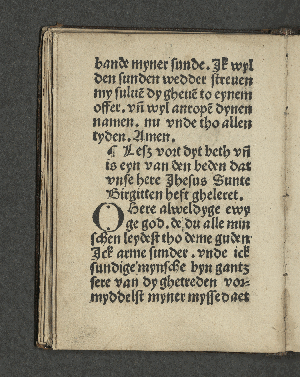 bande myner sunde. Jk wyl
den sunden wedder streuen
my suluē dy gheuē to eynem
offer. vñ wyl anropē dynen
namen. nu vnde tho allen
tyden. Amen.
¶ Lesz vort dyt beth vñ
is eyn van den beden dat
vnse here Jhesus Sunte
Birgitten heft gheleret.
O Here alweldyge ewy
ge god. de du alle min
schen leydest tho deme guden
Jck arme sunder. vnde ick
sundige mynsche byn gantz
sere van dy ghetreden vor⸗
myddelst myner myssedaet